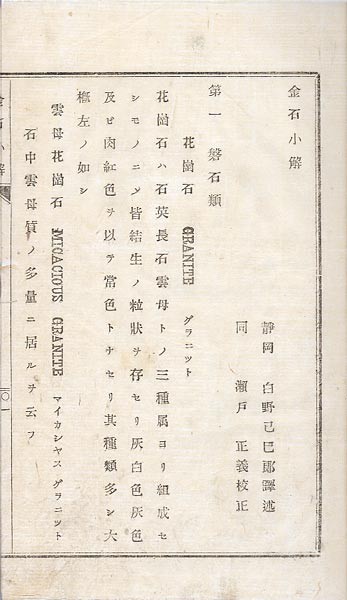 金石小解
静岡 白野己巳郎譯述
同 瀬戸 正義校正
第一 磐石類
花崗石 GRANITE グラニット
花崗石ハ石英長石雲母トノ三種属ヨリ組成セ
シモノニメ皆結生ノ粒狀ヲ存セリ灰白色灰色
及ビ肉紅色ヲ以テ常色トナセリ其種類多シ大
概左ノ如シ
雲母花崗石 MICACIOUS GRANITE マイカシヤス グラニツト
石中雲母質ノ多量ニ居ルヲ云フ